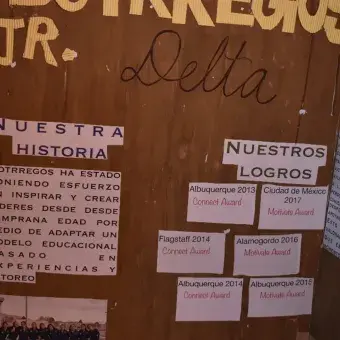 BORREGOS
JR.
Delta
NUESTRA
HISTORIA
HA ESTADO
ESFUERZO
INSPIRAR Y CREAR
DESDE DESDE
EDAD POR
MEDIO DE ADAPTAR UN
EDUCACIONAL
EN
Y
NUESTROS
LOGROS
Albuquerque 2013
Connect Award
Ciudad de México
2017
Motivate Award
Flagstaff 2014
Connect Award
Alamogordo 2016
Motivate Award
Albuquerque 2014
Connect Award
Albuquerque 2015
Motivate Award